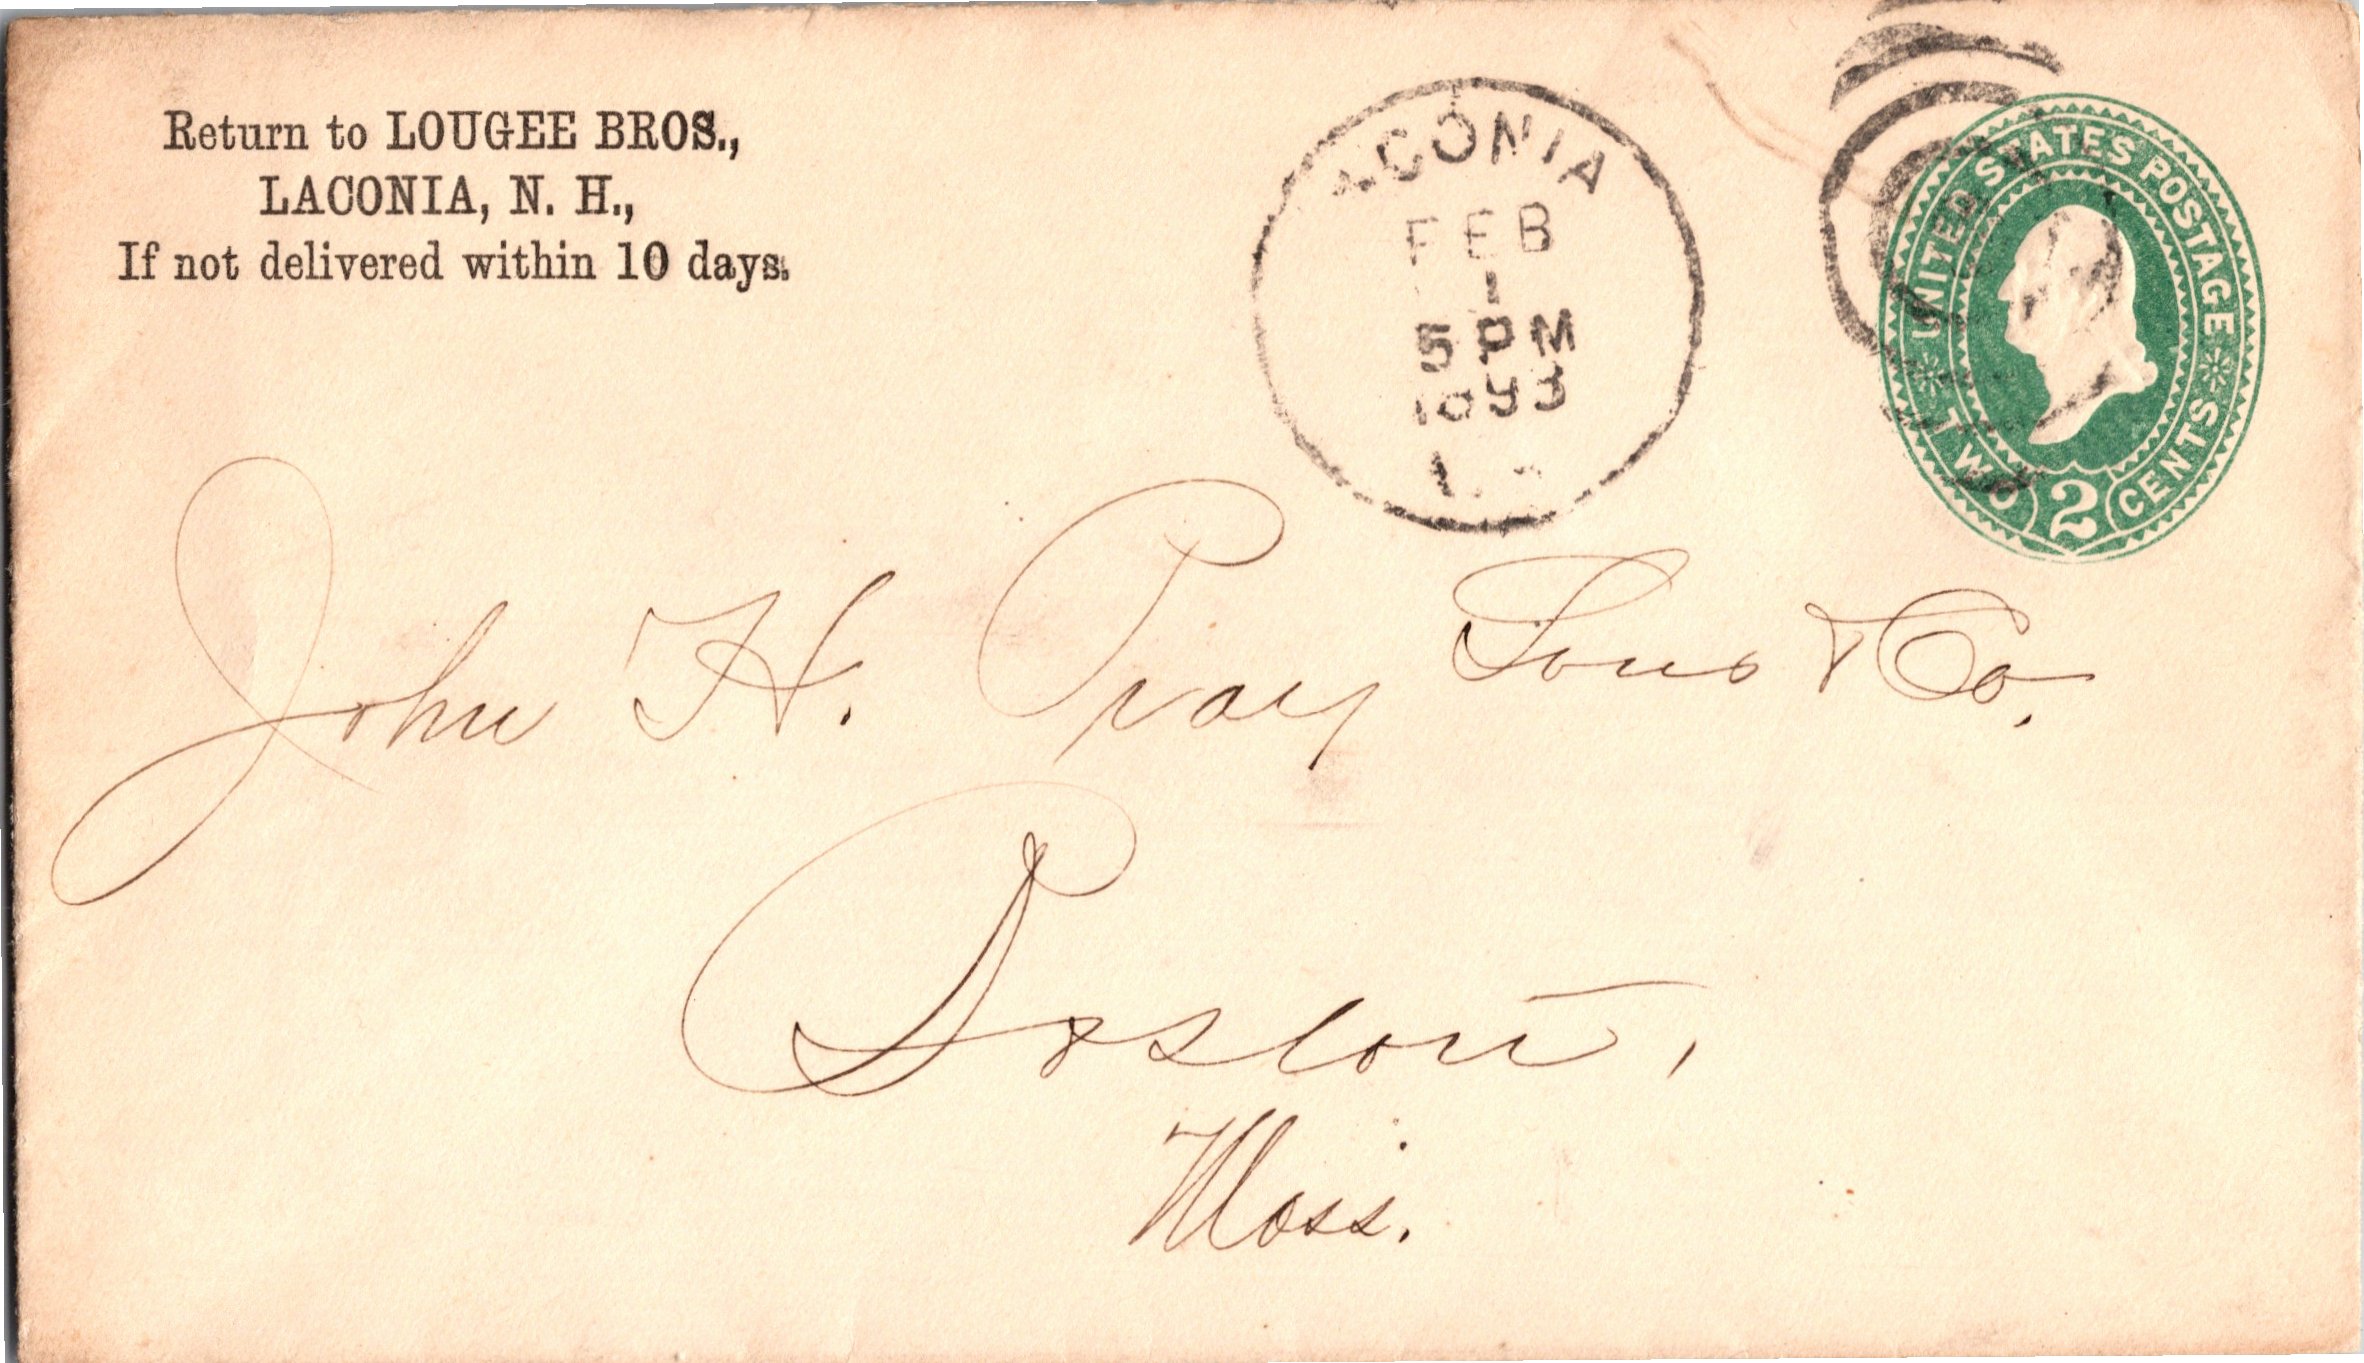 Return to LOUGEE BROS.,
LACONIA, N. H.,
If not delivered within 10 days.
LACONIA
FEB
1
5 PM
1893
UNITED STATES POSTAGE
TWO 2 CENTS
John H. Pray Sons & Co.
Boston,
Mass.